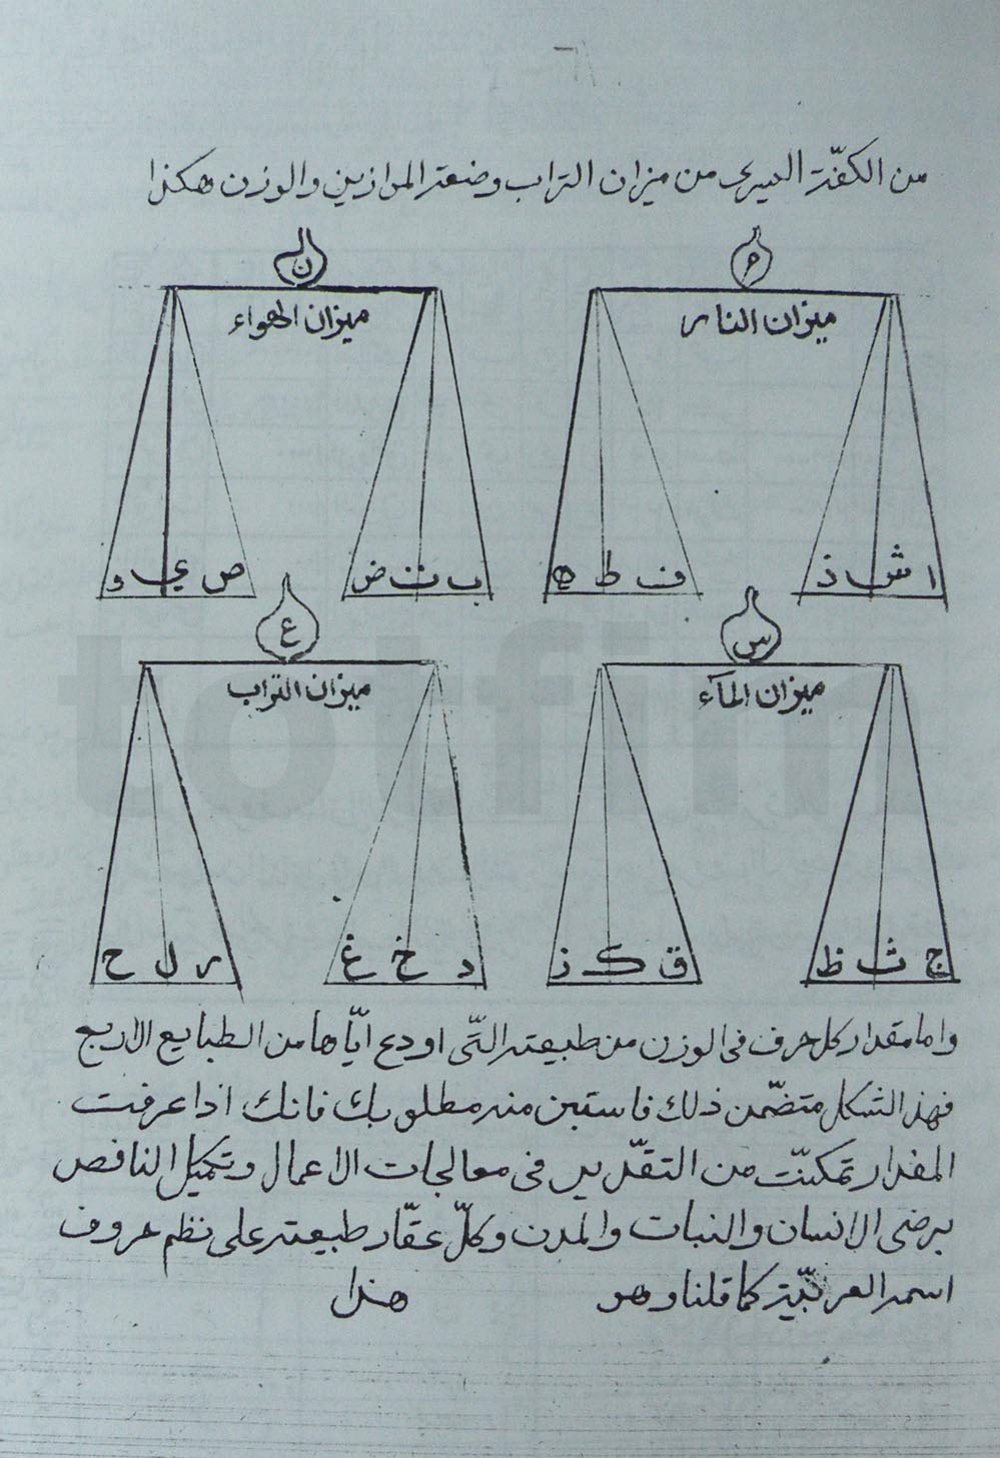 من الكفّة اليسرى من ميزان التراب وضعة الموازين والوزن هكذا
م ن
ميزان النار ميزان الهواء
ا ش ذ ف ط ه ب ت ض ص ي و
س ع
ميزان المآء ميزان التراب
ج ث ظ ق ك ز د خ غ ر ل ح
واما مقدار كل حرف فى الوزن من طبيعته التّى اودع ايّاها من الطبايع الاربع
فهذ الشكل متضّمن ذلك فاستبن منه مطلوبك فانك اذا عرفت
المقدار تمكنّت من التقّدير فى معالجات الاعمال وتكميل الناقص
الانسان والنبات والمدن وكلّ عقّار طبيعته على نظم حروف
اسمه العربيّة كما قلنا وهو هذا
totfim